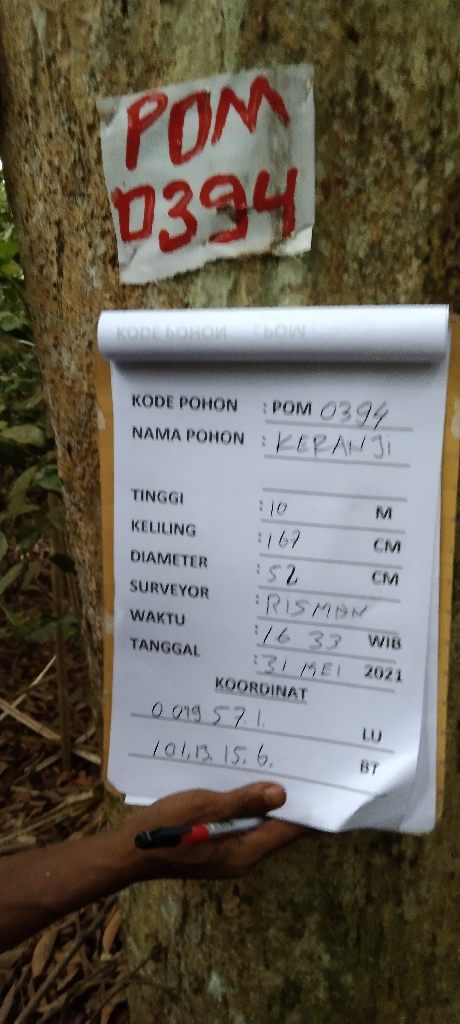 POM
0394
KODE POHON : POM 0394
NAMA POHON : KERANJI
TINGGI : 10 M
KELILING : 167 CM
DIAMETER : 52 CM
SURVEYOR : RISMAN
WAKTU : 16 33 WIB
TANGGAL : 31 MEI 2021
KOORDINAT
0 019 57 1. LU
101,13. 15. 6. BT